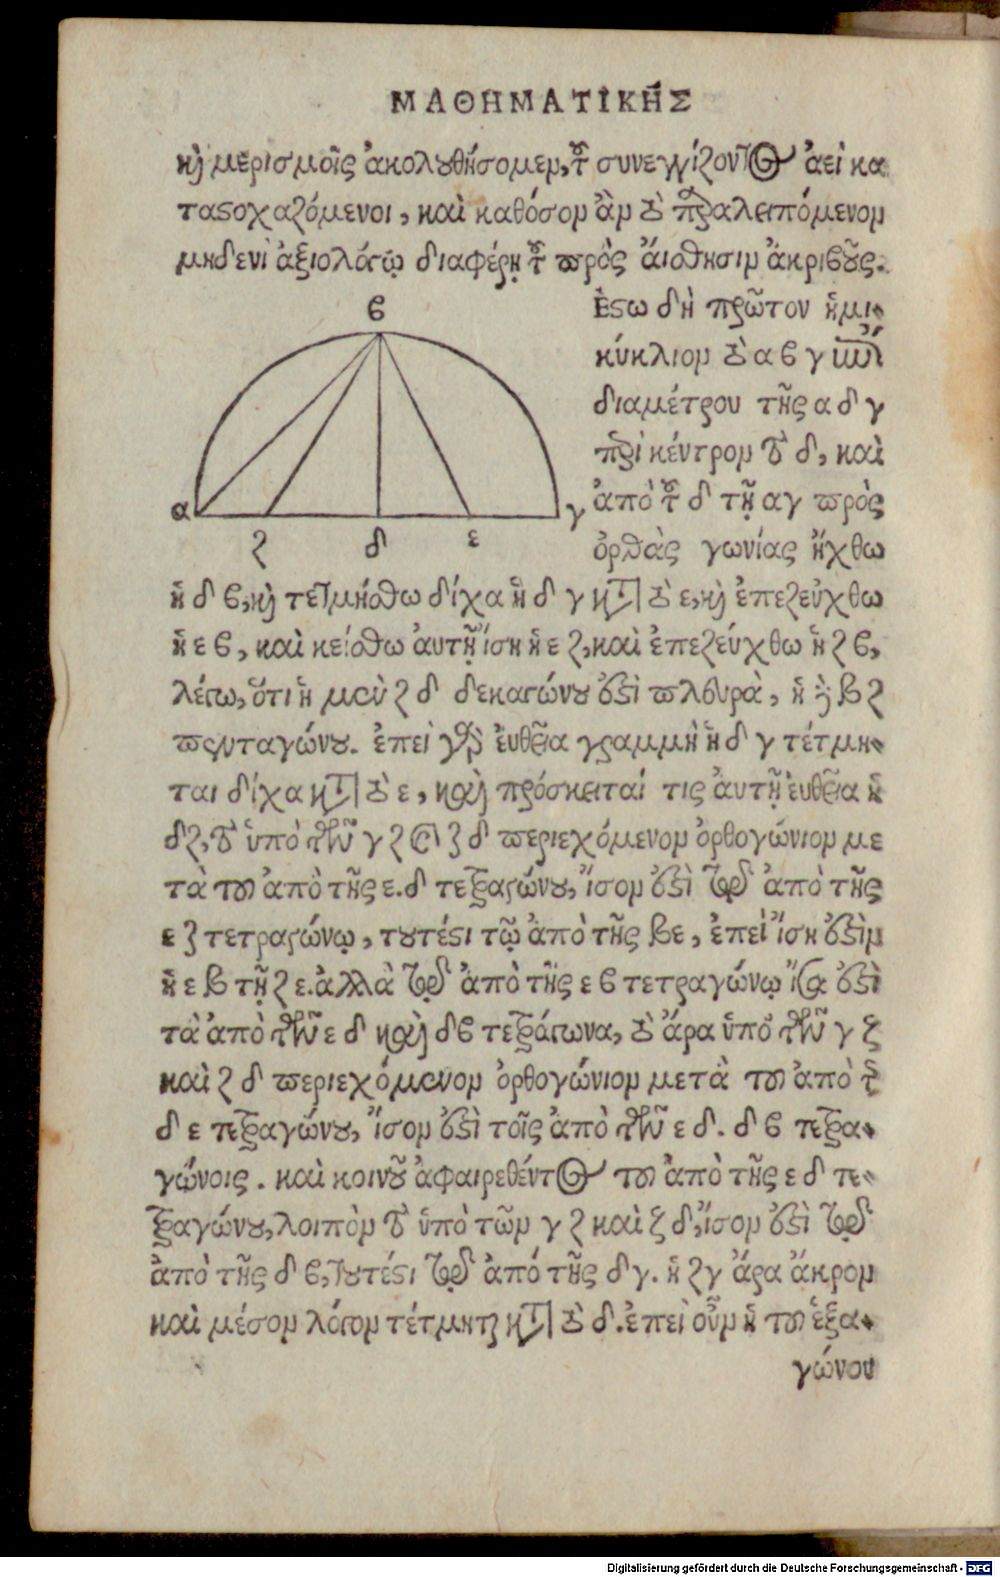 ΜΑΘΗΜΑΤΙΚΗ͂Σ
καὶ μερισμοῖς ἀκολουθήσομεν, τοῦ συνεγγίζοντος ἀεὶ κα
ταστοχαζόμενοι, καὶ καθόσον ἂν τὸ παραλειπόμενον
μηδενὶ ἀξιολόγῳ διαφέρῃ τοῦ πρὸς ἄισθησιν ἀκριβοῦς.
Ἔστω δὴ πρῶτον ἡμι-
κύκλιον τὸ α β γ ἐπὶ
διαμέτρου τῆς α δ γ
περὶ κέντρον τὸ δ, καὶ
ἀπὸ τοῦ δ τῇ αγ πρὸς
ὀρθὰς γωνίας ἤχθω
β
α
γ
ζ δ ε
ἡ δ β, καὶ τετμήσθω δίχα ἡ δ γ κατὰ τὸ ε, καὶ ἐπεζεύχθω
ἡ ε β, καὶ κείσθω ἀυτῇ ἴση ἡ ε ζ, καὶ ἐπεζεύχθω ἡ ζ β,
λέγω, ὅτι ἡ μὲν ζ δ δεκαγώνου ἐστὶ πλευρὰ, ἡ δὲ β ζ
πενταγώνου. ἐπεὶ γὰρ ἐυθεῖα γραμμὴ ἡ δ γ τέτμη-
ται δίχα κατὰ τὸ ε, καὶ πρόσκειταί τις ἀυτῇ ἐυθεῖα ἡ
δζ, τὸ ὑπὸ τῶν γ ζ καὶ ζ δ περιεχόμενον ὀρθογώνιον με
τὰ τοῦ ἀπὸ τῆς ε. δ τετραγώνου, ἴσον ἐστὶ τῷ ἀπὸ τῆς
ε ζ τετραγώνῳ, τουτέστι τῷ ἀπὸ τῆς βε, ἐπεὶ ἴση ἐστὶν
ἡ ε β τῇ ζ ε. ἀλλὰ τῷ ἀπὸ τῆς ε β τετραγώνῳ ἴσα ἐστὶ
τὰ ἀπὸ τῶν ε δ καὶ δβ τετράγωνα, τὸ ἄρα ὑπὸ τῶν γ ζ
καὶ ζ δ περιεχόμενον ὀρθογώνιον μετὰ τοῦ ἀπὸ τῆς
δ ε τετραγώνου, ἴσον ἐστὶ τοῖς ἀπὸ τῶν ε δ. δ β τετρα-
γώνοις. καὶ κοινοῦ ἀφαιρεθέντος τοῦ ἀπὸ τῆς ε δ τε-
τραγώνου, λοιπὸν τὸ ὑπὸ τῶν γ ζ καὶ ζ δ, ἴσον ἐστὶ τῷ
ἀπὸ τῆς δ β, τουτέστι τῷ ἀπό τῆς δγ. ἡ ζγ ἄρα ἄκρον
καὶ μέσον λόγον τέτμηται κατὰ τὸ δ. ἐπεὶ οὖν ἡ τοῦ ἑξα-
γώνου
Digitalisierung gefördert durch die Deutsche Forschungsgemeinschaft - DFG